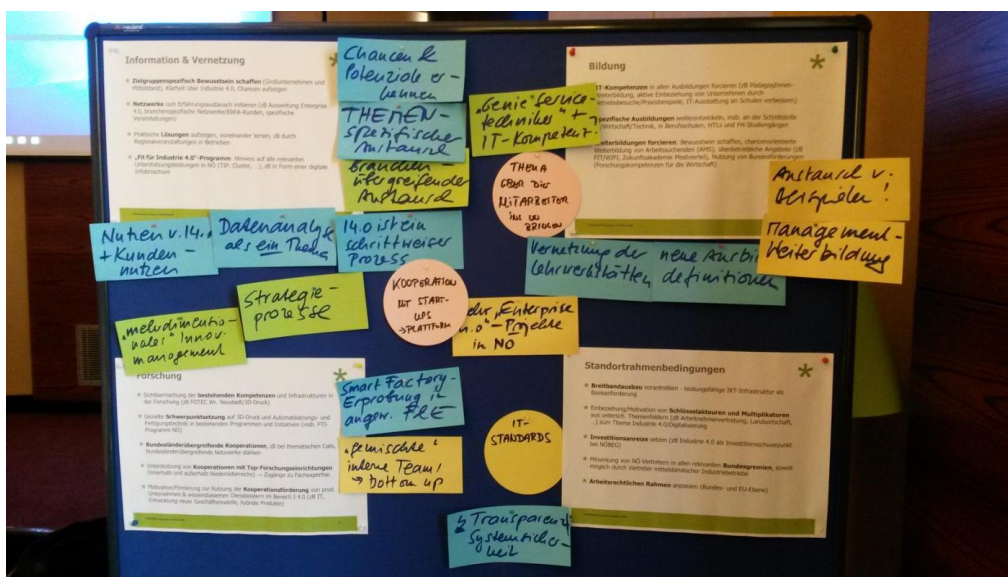 Information & Vernetzung
Zielgruppenspezifisch Bewusstsein schaffen (Großunternehmen und
Mittelstand), Klarheit über Industrie 4.0, Chancen aufzeigen
Netzwerke zum Erfahrungsaustausch initiieren (zB Ausweitung Enterprise
4.0, branchenspezifische Netzwerke/ERFA-Runden, spezifische
Veranstaltungen)
Praktische Lösungen aufzeigen, voneinander lernen, zB durch
Regionalveranstaltungen in Betrieben
„Fit für Industrie 4.0"-Programm: Hinweis auf alle relevanten
Unterstützungsleistungen in NÖ (TIP, Cluster, ...), zB in Form einer digitale
Infobroschüre
Chancen &
Potenziale er-
kennen
THEMEN-
spezifischer
Austausch
Branchen
übergreifender
Austausch
„Genie Service-
techniker" +
IT-Kompetent.
THEMA
ÜBER DIE
MITARBEITER
INS UN
BRINGEN
Bildung
IT-Kompetenzen in allen Ausbildungen forcieren (zB PädagogInnen-
Weiterbildung, aktive Einbeziehung von Unternehmen durch
Betriebsbesuche/Praxisbeispiele, IT-Ausstattung an Schulen verbessern)
Spezifische Ausbildungen weiterentwickeln, insb. an der Schnittstelle
Wirtschaft/Technik, in Berufsschulen, HTLs und FH-Studiengängen
Weiterbildungen forcieren: Bewusstsein schaffen, chancenorientierte
Weiterbildung von Arbeitssuchenden (AMS), überbetriebliche Angebote (zB
FIT/WIFI, Zukunftsakademie Mostviertel), Nutzung von Bundesförderungen
(Forschungskompetenzen für die Wirtschaft)
Austausch v.
Beispielen!
Management-
Weiterbildung
Nutzen v. I4.0
+ Kunden-
nutzen
Datenanalyse
als ein Thema
I4.0 ist ein
schrittweiser
Prozess
Vernetzung der
Lehrwerkstätten
neue Ausbil
definitionen
KOOPERATION
MIT START-
UPS
→PLATTFORM
Strategie-
prozesse
„mehrdimentio-
nales" Innov.
management
mehr „Enterprise
4.0"-Projekte
in NÖ
Forschung
Sichtbarmachung der bestehenden Kompetenzen und Infrastrukturen in
der Forschung (zB FOTEC Wr. Neustadt/3D-Druck)
Gezielte Schwerpunktsetzung auf 3D-Druck und Automatisierungs- und
Fertigungstechnik in bestehenden Programmen und Initiativen (insb. FTI-
Programm NÖ)
Bundesländerübergreifende Kooperationen, zB bei thematischen Calls,
Bundesländerübergreifende Netzwerke stärken
Unterstützung von Kooperationen mit Top-Forschungseinrichtungen
(innerhalb und außerhalb Niederösterreichs) → Zugänge zu Fachexpertise
Motivation/Förderung zur Nutzung der Kooperationsförderung von prod.
Unternehmen & wissensbasierten Dienstleistern im Bereich I 4.0 (zB IT,
Entwicklung neuer Geschäftsmodelle, hybride Produkte)
Smart Factory-
Erprobung in
angew. F&E
„gemischte"
interne Team/
→ bottom up
IT-
STANDARDS
Transparenz
Systemsicher-
heit
Standortrahmenbedingungen
Breitbandausbau vorantreiben - leistungsfähige IKT-Infrastruktur als
Basisanforderung
Einbeziehung/Motivation von Schlüsselakteuren und Multiplikatoren
aus untersch. Themenfeldern (zB Arbeitnehmervertretung, Landwirtschaft,
...) zum Thema Industrie 4.0/Digitalisierung
Investitionsanreize setzen (zB Industrie 4.0 als Investitionsschwerpunkt
bei NÖBEG)
Mitwirkung von NÖ Vertretern in allen relevanten Bundesgremien, soweit
möglich durch Vertreter mittelständischer Industriebetriebe
Arbeitsrechtlichen Rahmen anpassen (Bundes- und EU-Ebene)